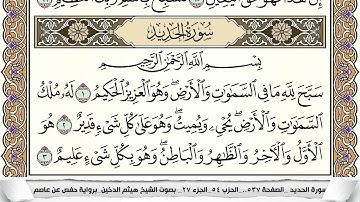 إِنَّ هَٰذَا لَهُوَ حَقُّ ٱلْيَقِينِ ۝٩٥ فَسَبِّحْ بِٱسْمِ رَبِّكَ ٱلْعَظِيمِ ۝٩٦
سُورَةُ الحَدِيدِ
بِسْمِ ٱللَّهِ ٱلرَّحْمَٰنِ ٱلرَّحِيمِ
سَبَّحَ لِلَّهِ مَا فِي ٱلسَّمَٰوَٰتِ وَٱلْأَرْضِۖ وَهُوَ ٱلْعَزِيزُ ٱلْحَكِيمُ ۝١ لَهُۥ مُلْكُ
ٱلسَّمَٰوَٰتِ وَٱلْأَرْضِۖ يُحْيِۦ وَيُمِيتُۖ وَهُوَ عَلَىٰ كُلِّ شَيْءٍ قَدِيرٌ ۝٢ هُوَ
ٱلْأَوَّلُ وَٱلْآخِرُ وَٱلظَّٰهِرُ وَٱلْبَاطِنُۖ وَهُوَ بِكُلِّ شَيْءٍ عَلِيمٌ ۝٣
سورة الحديد _الصفحة ٥٣٧.. الحزب ٥٤_الجزء ٢٧_ بصوت الشيخ هيثم الدخين_ برواية حفص عن عاصم